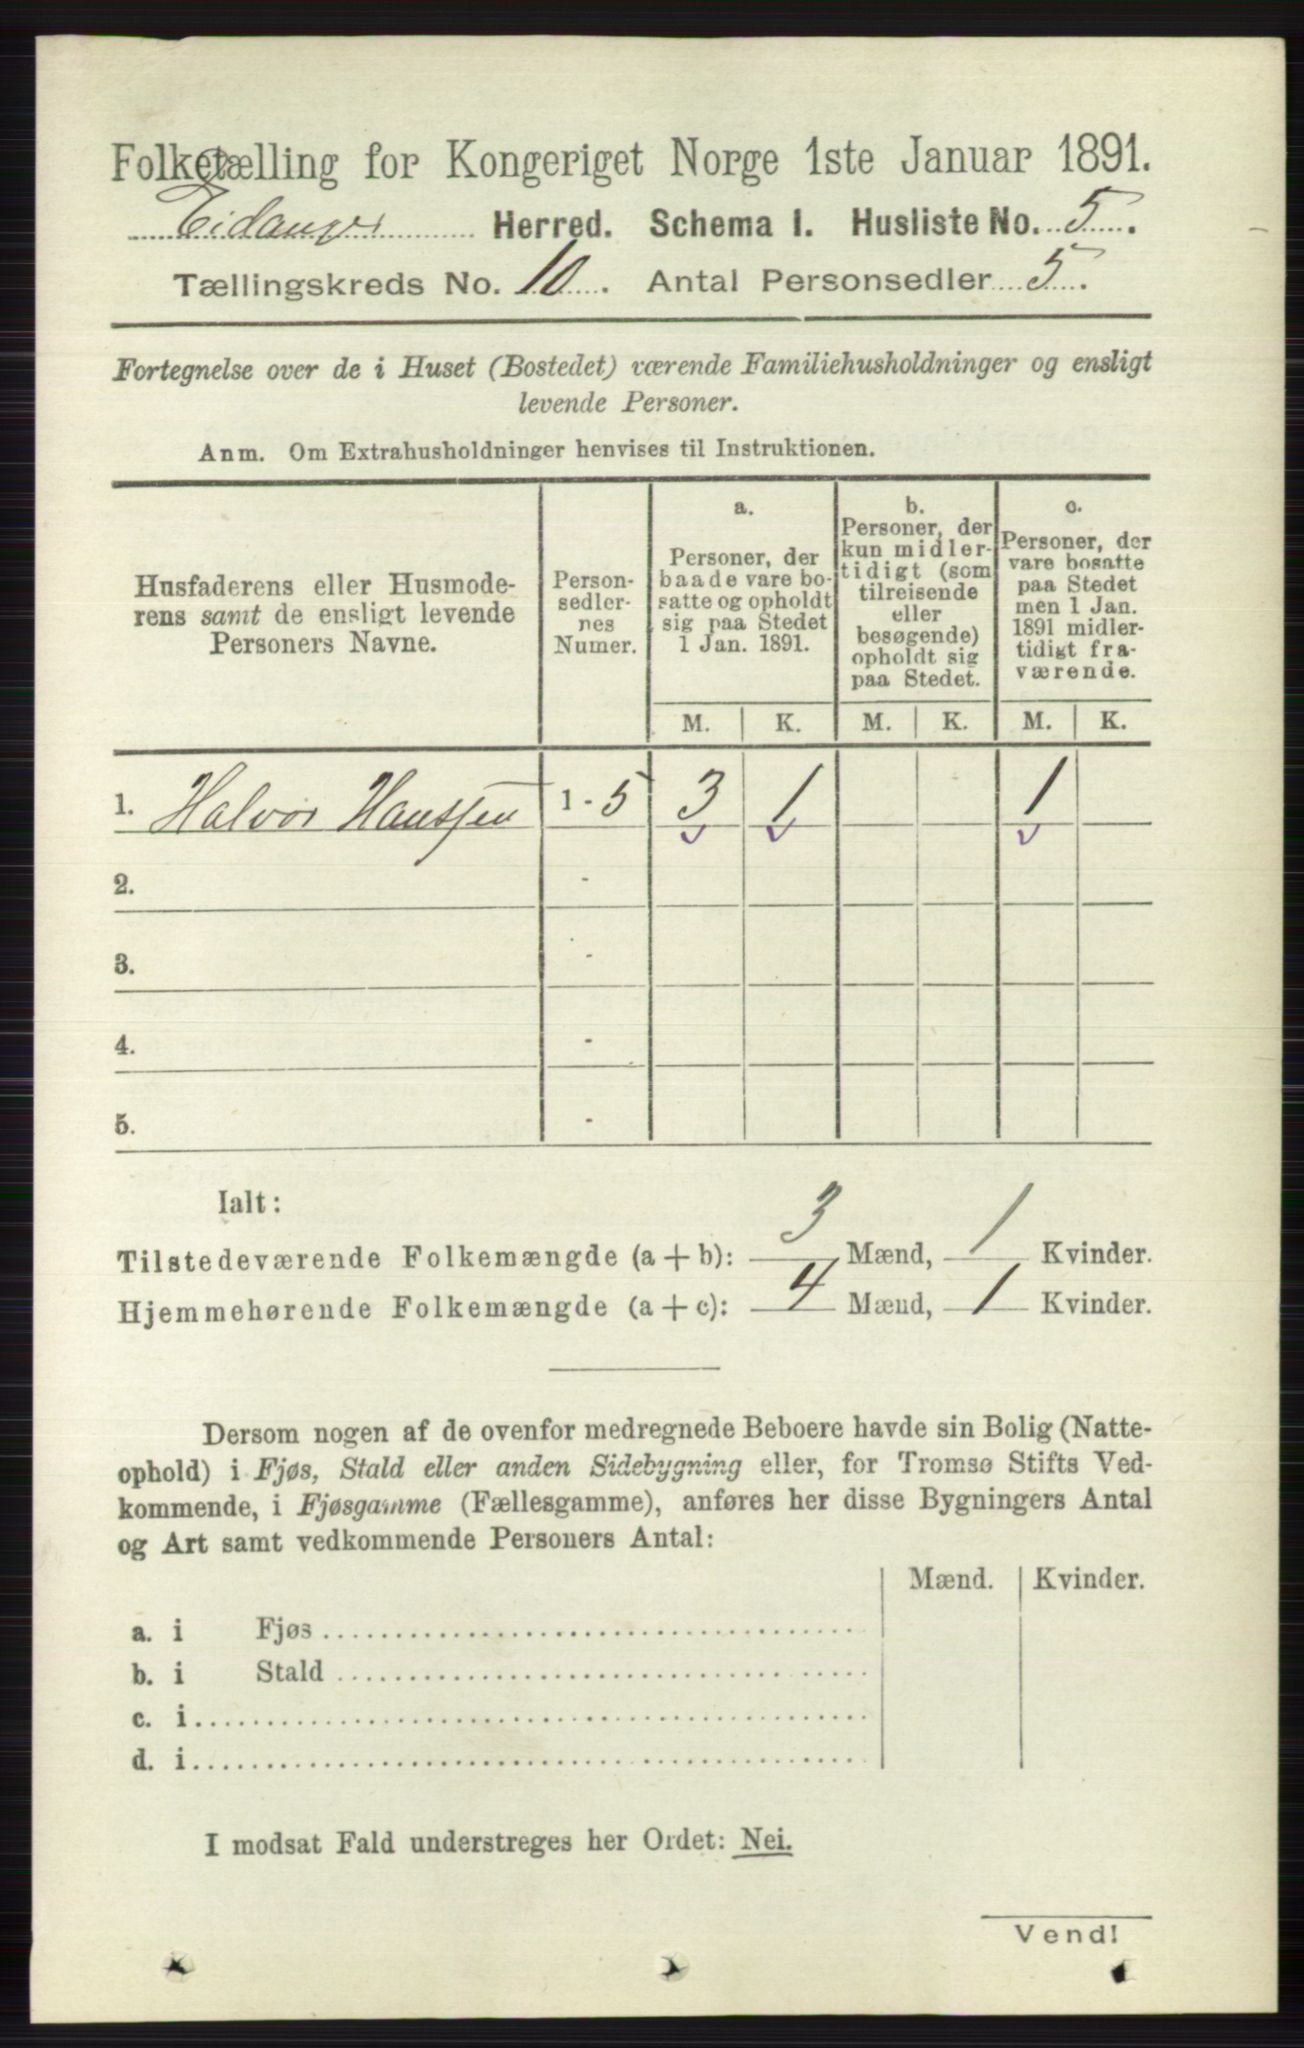 Folketælling for Kongeriget Norge 1ste Januar 1891.
Eidanger Herred. Schema I. Husliste No. 5.
Tællingskreds No. 10. Antal Personsedler 5.
Fortegnelse over de i Huset (Bostedet) værende Familiehusholdninger og ensligt
levende Personer.
Anm. Om Extrahusholdninger henvises til Instruktionen.
Husfaderens eller Husmode-
rens samt de ensligt levende
Personers Navne.
Person-
sedler-
nes
Numer.
a.
Personer, der
baade vare bo-
satte og opholdt
sig paa Stedet
1 Jan. 1891.
b.
Personer, der
kun midler-
tidigt (som
tilreisende
eller
besøgende)
opholdt sig
paa Stedet.
c.
Personer, der
vare bosatte
paa Stedet
men 1 Jan.
1891 midler-
tidigt fra-
værende.
M. K. M. K. M. K.
1. Halvor Hanssen 1 - 5 3 1 1
2. -
3. -
4. -
5. -
Ialt:
Tilstedeværende Folkemængde (a + b): 3 Mænd, 1 Kvinder.
Hjemmehørende Folkemængde (a + c): 4 Mænd, 1 Kvinder.
Dersom nogen af de ovenfor medregnede Beboere havde sin Bolig (Natte-
ophold) i Fjøs, Stald eller anden Sidebygning eller, for Tromsø Stifts Ved-
kommende, i Fjøsgamme (Fællesgamme), anføres her disse Bygningers Antal
og Art samt vedkommende Personers Antal:
Mænd. Kvinder.
a. i Fjøs
b. i Stald
c. i
d. i
I modsat Fald understreges her Ordet: Nei.
Vend!